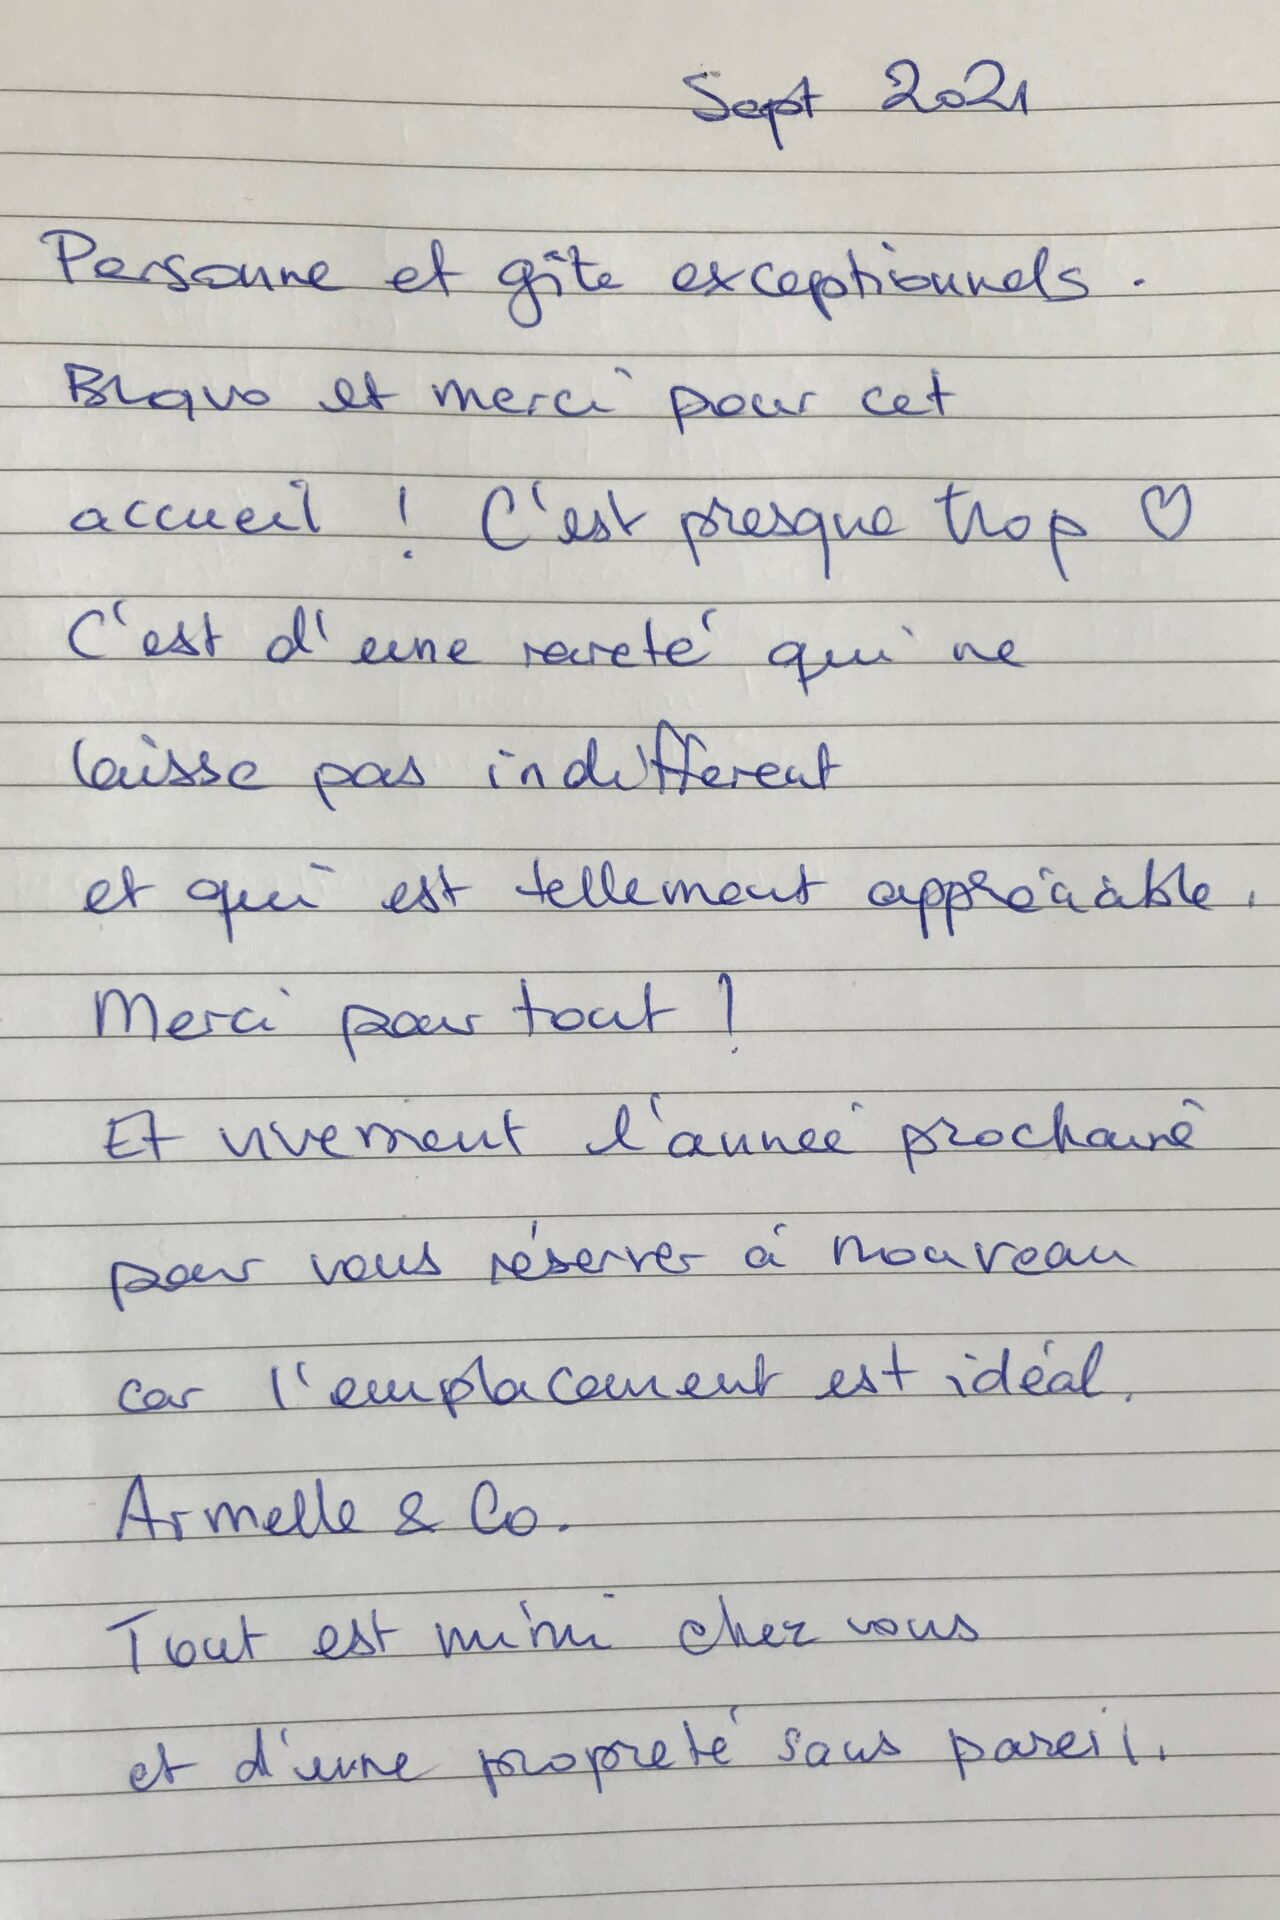 Sept 2021
Personne et gîte exceptionnels.
Bravo et merci pour cet
accueil ! C'est presque trop ♡
C'est d'une rareté qui ne
laisse pas indifferent
et qui est tellement appréciable.
Merci pour tout !
Et vivement l'année prochaine
pour vous réserver à nouveau
car l'emplacement est idéal.
Armelle & Co.
Tout est mimi chez vous
et d'une propreté sans pareil.